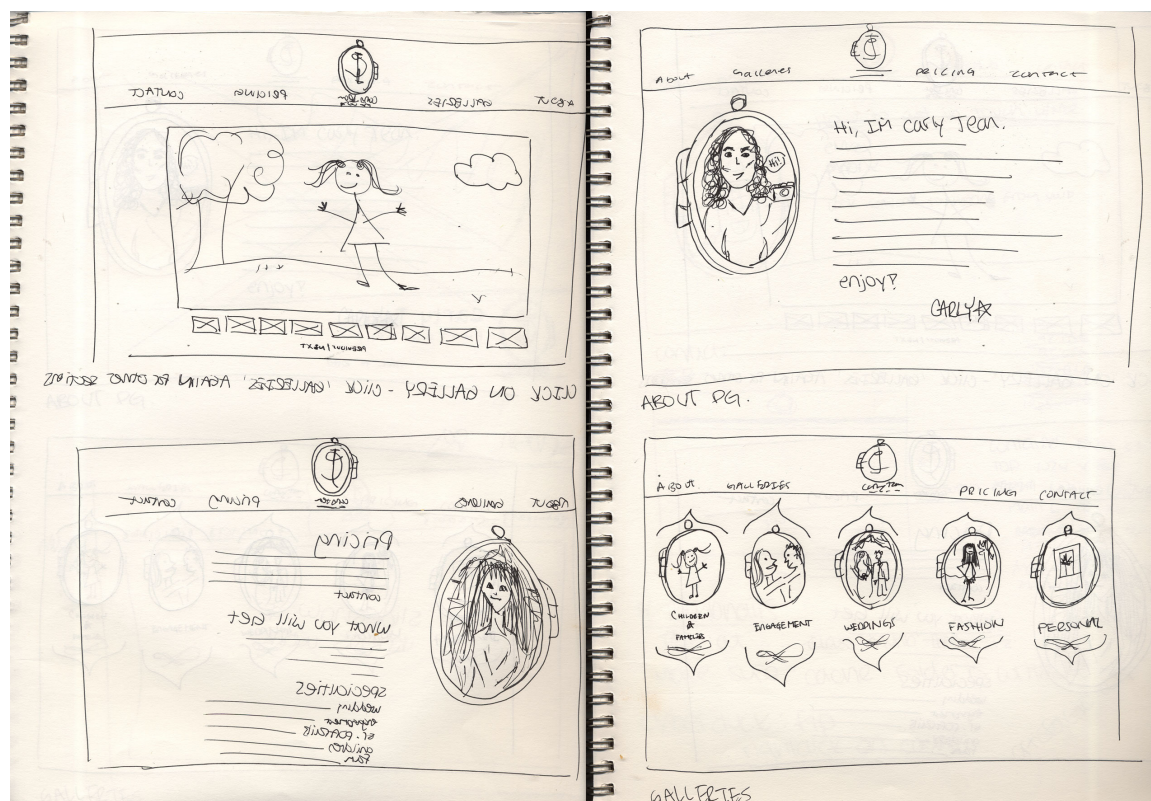 ABOUT
GALLERIES
CARLY JEAN
PRICING
CONTACT
PREVIOUS / NEXT
CLICK ON GALLERY - CLICK 'GALLERIES' AGAIN FOR OTHER SECTIONS
ABOUT
GALLERIES
PRICING
CONTACT
Pricing
contact
what you will get
specialties
wedding
engagement
children
About
Galleries
PRICING
CONTACT
Hi, I'm carly Jean.
Hi!
enjoy!
CARLY
ABOUT PG.
ABOUT
GALLERIES
CARLY JEAN
PRICING
CONTACT
CHILDREN
&
FAMILIES
ENGAGEMENT
WEDDINGS
FASHION
PERSONAL
GALLERIES
GALLERIES